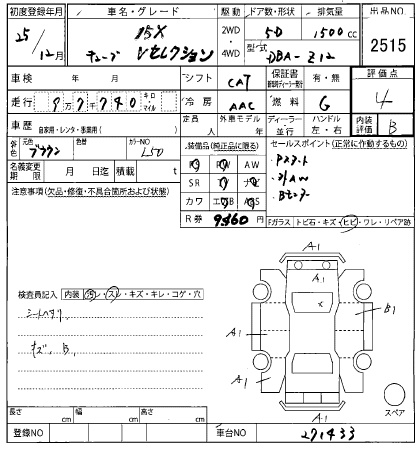 初度登録年月 車名・グレード 駆動 ドア数・形状 排気量 出品NO
25年 12月 15X キューブ Vセレクション 2WD・4WD 5D 1500cc 2515
型式 DBA-Z12
車検 年 月 シフト CAT 保証書 有・無 評価点 4
走行 9万7千740 キロ・マイル 冷房 AAC 燃料 G
定員 人 外車モデル 年 ディーラー・並行 ハンドル 左・右 内装評価 B
車歴 自家用・レンタ・事業用( )
外色 元色 ブラウン 色替 カラーNO L50
装備品(純正品に限る) セールスポイント(正常に作動するもの)
名義変更期限 月 日迄 積載 t
PS AW PW
SR ナビ TV
カワ エアB ABS
R券 9860
Pスタート
Bモニター
注意事項(欠品・修復・不具合箇所および状態)
Fガラス トビ石・キズ・ヒビ・ワレ・リペア跡
検査員記入 内装 汚レ・スレ・キズ・キレ・コゲ・穴
シートヘタリ
キズ、B、
A1
X
A1
B1
A1
A1
A1
スペア
長さ cm 幅 cm 高さ cm
登録NO 車台NO 271433